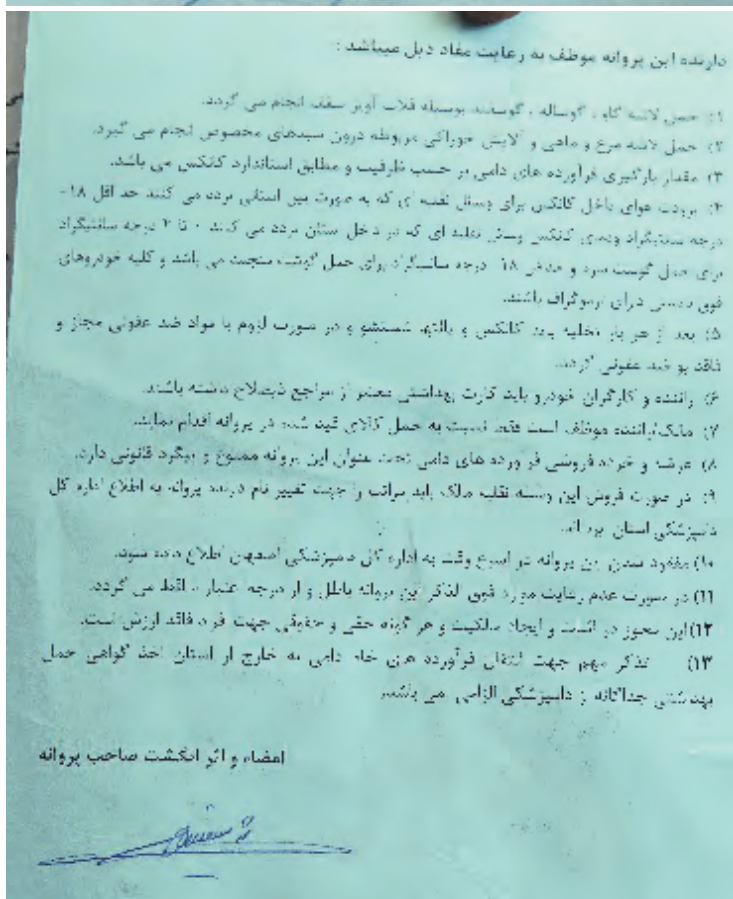 دارنده این پروانه موظف به رعایت مفاد ذیل میباشد :
۱) حمل لاشه گاو ، گوساله ، گوسفند بوسیله قلاب آویز سقف انجام می گردد.
۲) حمل لاشه مرغ و ماهی و آلایش خوراکی مربوطه درون سبدهای مخصوص انجام می گیرد.
۳) مقدار بارگیری فرآورده های دامی بر حسب ظرفیت و مطابق استاندارد کانکس می باشد.
۴) برودت هوای داخل کانکس برای وسائل نقلیه ای که به صورت بین استانی تردد می کنند حد اقل ۱۸-
درجه سانتیگراد ودمای کانکس وسائل نقلیه ای که در داخل استان تردد می کنند ۰ تا ۴ درجه سانتیگراد
برای حمل گوشت سرد و حداقل ۱۸- درجه سانتیگراد برای حمل گوشت منجمد می باشد و کلیه خودروهای
فوق بایستی دارای ترموگراف باشند.
۵) بعد از هر بار تخلیه باید کانکس و پالتها شستشو و در صورت لزوم با مواد ضد عفونی مجاز و
فاقد بو ضد عفونی گردد.
۶) راننده و کارگران خودرو باید کارت بهداشتی معتبر از مراجع ذیصلاح داشته باشند.
۷) مالک/راننده موظف است فقط نسبت به حمل کالای قید شده در پروانه اقدام نماید.
۸) عرضه و خرده فروشی فرآورده های دامی تحت عنوان این پروانه ممنوع و پیگرد قانونی دارد.
۹) در صورت فروش این وسیله نقلیه مالک باید مراتب را جهت تغییر نام دارنده پروانه به اطلاع اداره کل
دامپزشکی استان برساند.
۱۰) مفقود شدن این پروانه در اسرع وقت به اداره کل دامپزشکی اصفهان اطلاع داده شود.
۱۱) در صورت عدم رعایت موارد فوق الذکر این پروانه باطل و از درجه اعتبار ساقط می گردد.
۱۲) این مجوز در اثبات و ایجاد مالکیت و هر گونه حقی و حقوقی جهت فرد فاقد ارزش است.
۱۳) تذکر مهم جهت انتقال فرآورده های خام دامی به خارج از استان اخذ گواهی حمل
بهداشتی جداگانه از دامپزشکی الزامی می باشد.
امضاء و اثر انگشت صاحب پروانه